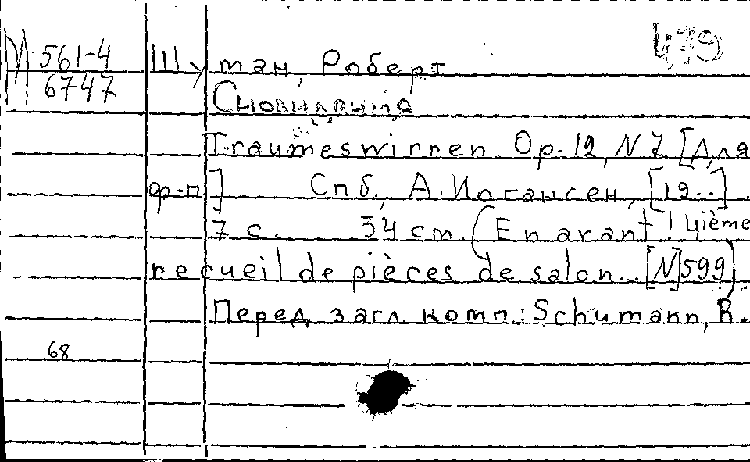 М 561-4
6747
479
Шуман, Роберт
Сновидения
Traumeswirren. Op. 12, N 7. [Для
ф-п] Спб, А. Иогансен, [19..]
7 с. 34 cm. (En avant! 4ième
recueil de pièces de salon... [N]599)
Перед загл. комп.: Schumann, R.
68